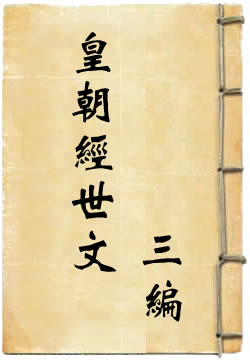 皇朝經世文
三編